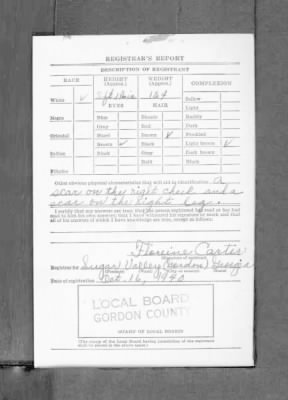 REGISTRAR'S REPORT
DESCRIPTION OF REGISTRANT
RACE HEIGHT (Approx.) WEIGHT (Approx.) COMPLEXION
White ✓ 5 ft 164 Sallow
EYES HAIR Light
Negro Blue Blonde Ruddy
Gray Red Dark
Oriental Hazel Brown ✓ Freckled
Brown ✓ Black Light brown ✓
Indian Black Gray Dark brown
Bald Black
Filipino
Other obvious physical characteristics that will aid in identification A
scar on the right cheek and a
scar on the right leg.
I certify that my answers are true; that the person registered has read or has had
read to him his own answers; that I have witnessed his signature or mark and that
all of his answers of which I have knowledge are true, except as follows:
Floreine Curtis
(Signature of registrar)
Registrar for Sugar Valley (Gordon) Georgia
(Precinct) (Ward) (City or county) (State)
Date of registration Oct. 16, 1940
LOCAL BOARD
GORDON COUNTY
STAMP OF LOCAL BOARD
(The stamp of the Local Board having jurisdiction of the registrant
shall be placed in the above space.)